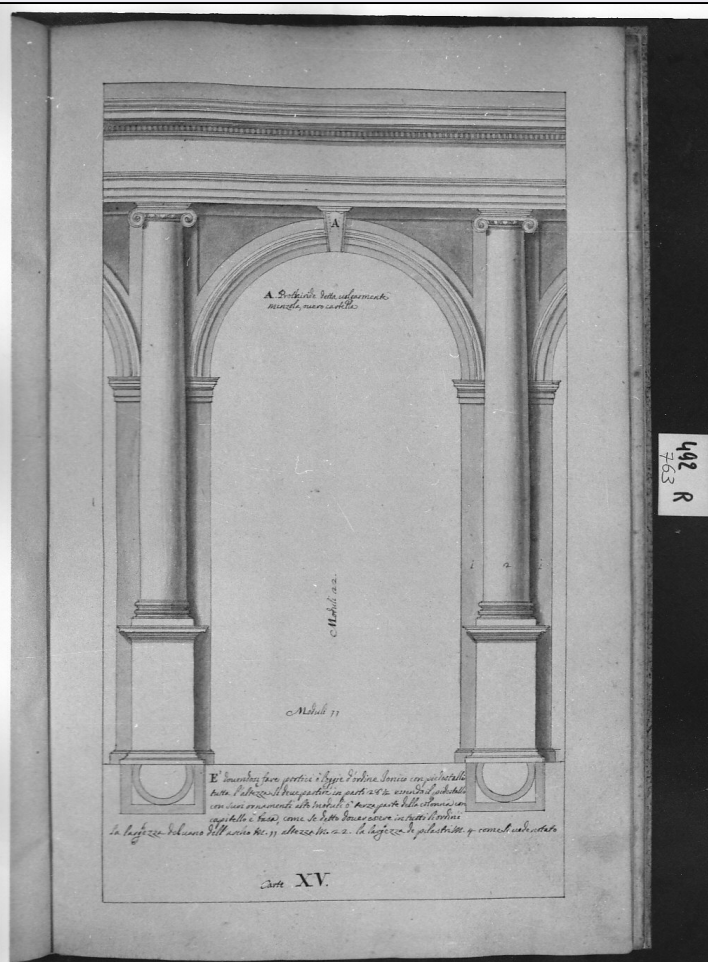 A
A Prothiride detta uolgarmente
menzola, ouero cartella
1 2 1
Moduli 22.
Moduli 11
E' douendosi fare portici ò loggie d'ordine Ionico con piedestalli
tutta l'altezza si deue partire in parti 28½ essendo il piedestallo
con suoi ornamenti alto moduli 6 terza parte della colonna con
capitello è basa, come se detto douer essere in tutti li ordini
la largezza del uano dell'archo M. 11 altezza M. 22. la largezza de pilastri M. 4 come si uede notato
Carte XV.
492
763
R